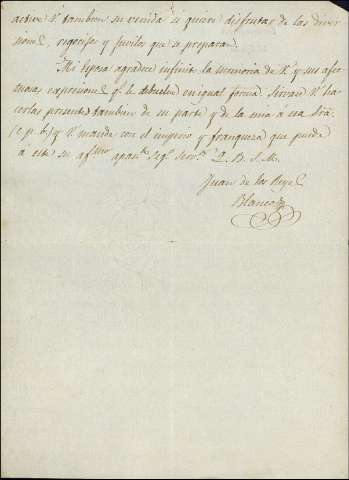 active V. tambien su venida si quiere disfrutar de las diver
siones, regocijos y jubilos que se preparan.
Mi esposa agradece infinit. la memoria de V. y sus afec
tuosas expresiones q.e le debuelve en igual forma. Sirvase V. ha
cerlas presentes tambien de su parte y de la mia á esa Sra.
(c. p. b.) y V. mande con el imperio y franqueza que puede
á este su af.mo apas.do Seg.o Serv.or Q. B. S. M.
Juan de los Reyes
Blanco